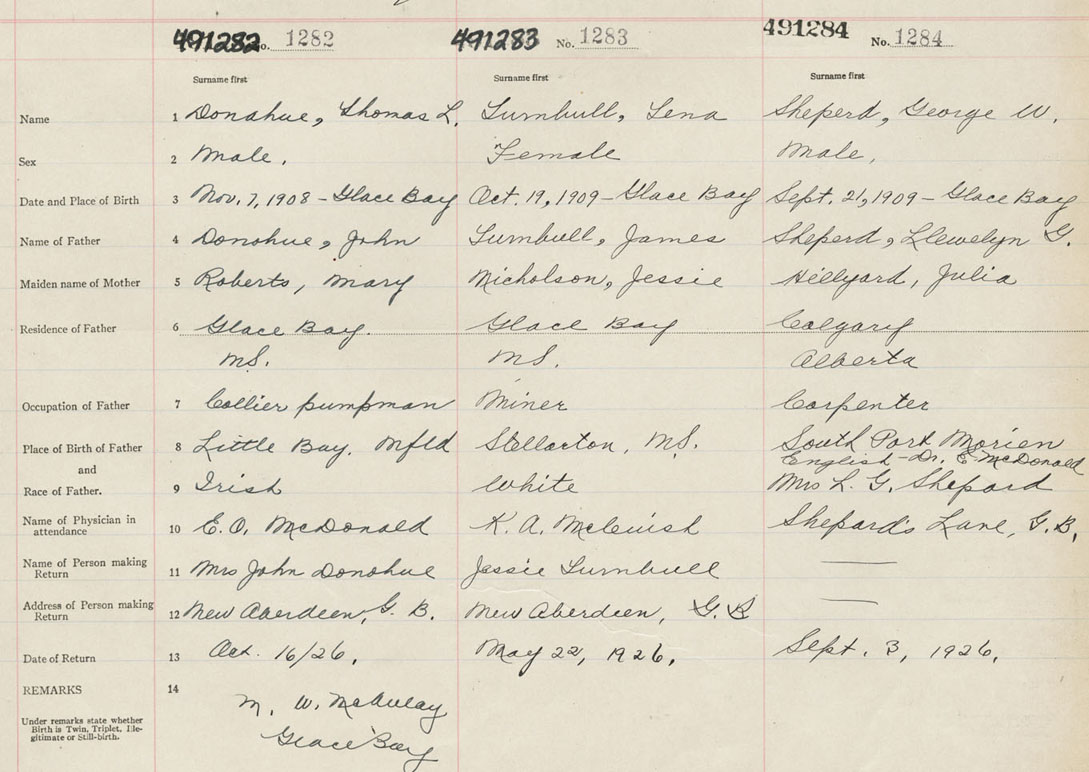 491282 No. 1282 491283 No. 1283 491284 No. 1284
Surname first Surname first Surname first
Name 1 Donahue, Thomas L. Turnbull, Lena Sheperd, George W.
Sex 2 Male. Female Male,
Date and Place of Birth 3 Nov. 7, 1908 - Glace Bay Oct. 19, 1909 - Glace Bay Sept. 21, 1909 - Glace Bay
Name of Father 4 Donohue, John Turnbull, James Sheperd, Llewelyn G.
Maiden name of Mother 5 Roberts, Mary Nicholson, Jessie Hillyard, Julia
Residence of Father 6 Glace Bay. Glace Bay Calgary
N.S. N.S. Alberta
Occupation of Father 7 Collier pumpman Miner Carpenter
Place of Birth of Father 8 Little Bay. Nfld Stellarton, N.S. South Port Morien
and English - Dr. E McDonald
Race of Father. 9 Irish White Mrs L. G. Shepard
Name of Physician in attendance 10 E.O. McDonald K. A. McCuish Shepard's Lane, G.B.
Name of Person making Return 11 Mrs John Donohue Jessie Turnbull
Address of Person making Return 12 New Aberdeen, G. B. New Aberdeen, G. B
Date of Return 13 Oct. 16/26. May 22, 1926. Sept. 3, 1926.
REMARKS 14
M. W. McAulay
Under remarks state whether
Birth is Twin, Triplet, Ille-
gitimate or Still-birth.
Glace Bay